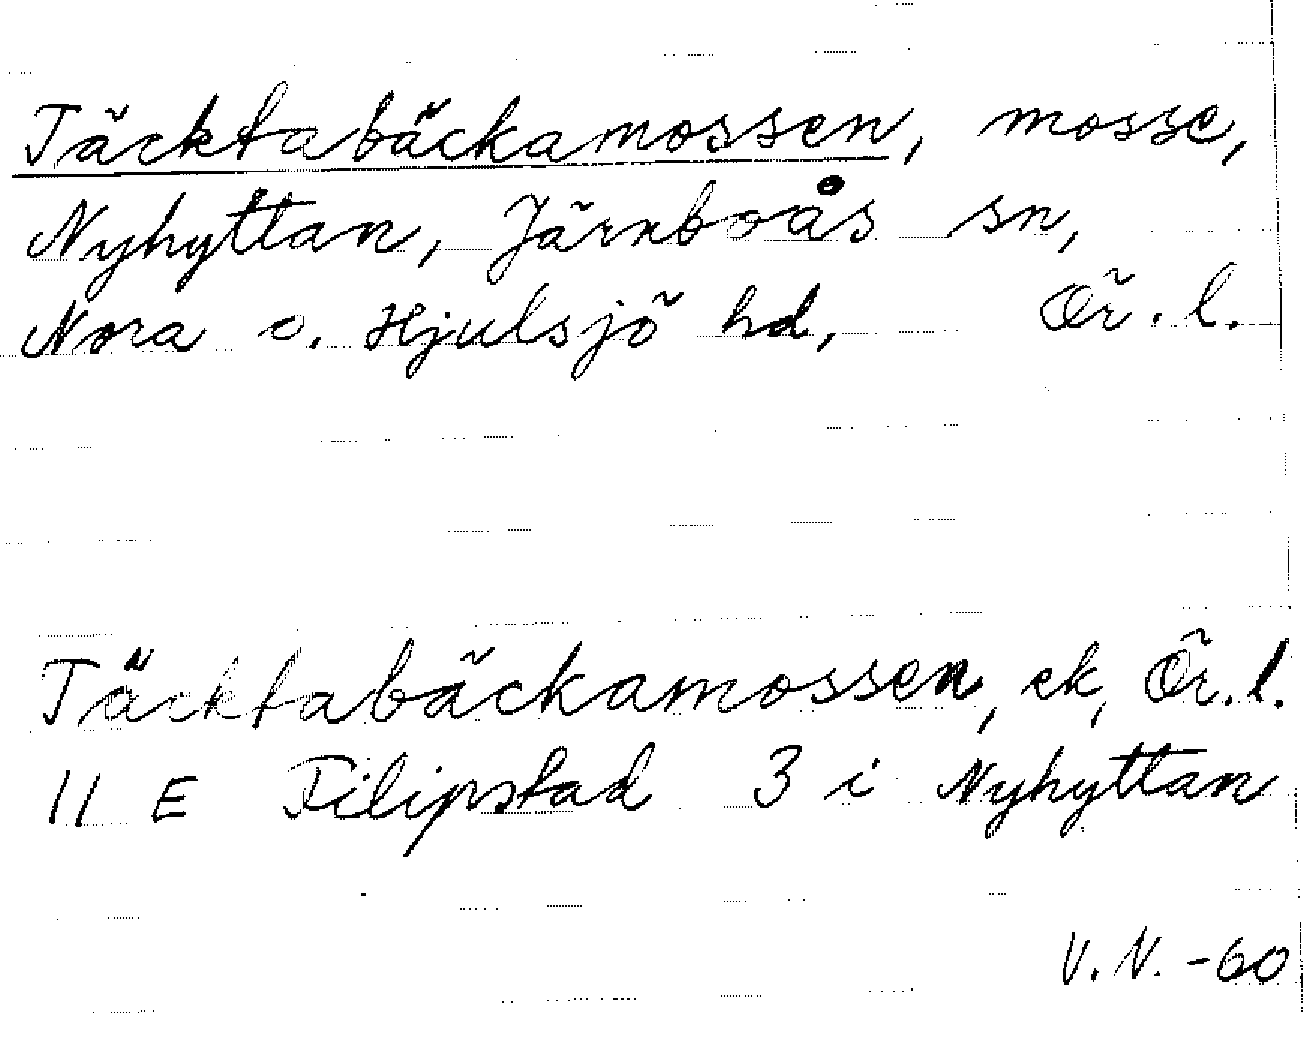 Täcktabäckamossen, mosse,
Nyhyttan, Järnboås sn,
Nora o. Hjulsjö hd, Ör. l.
Täcktabäckamossen, ek, Ör. l.
11 E Filipstad 3 i Nyhyttan
V. N. -60